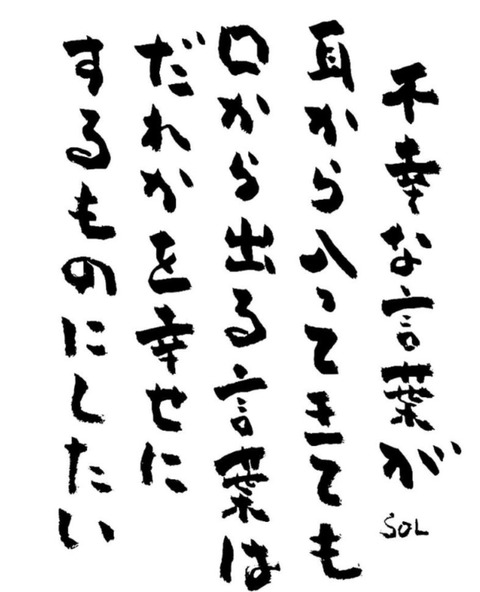 不幸な言葉が
耳から入ってきても
口から出る言葉は
だれかを幸せに
するものにしたい
SOL